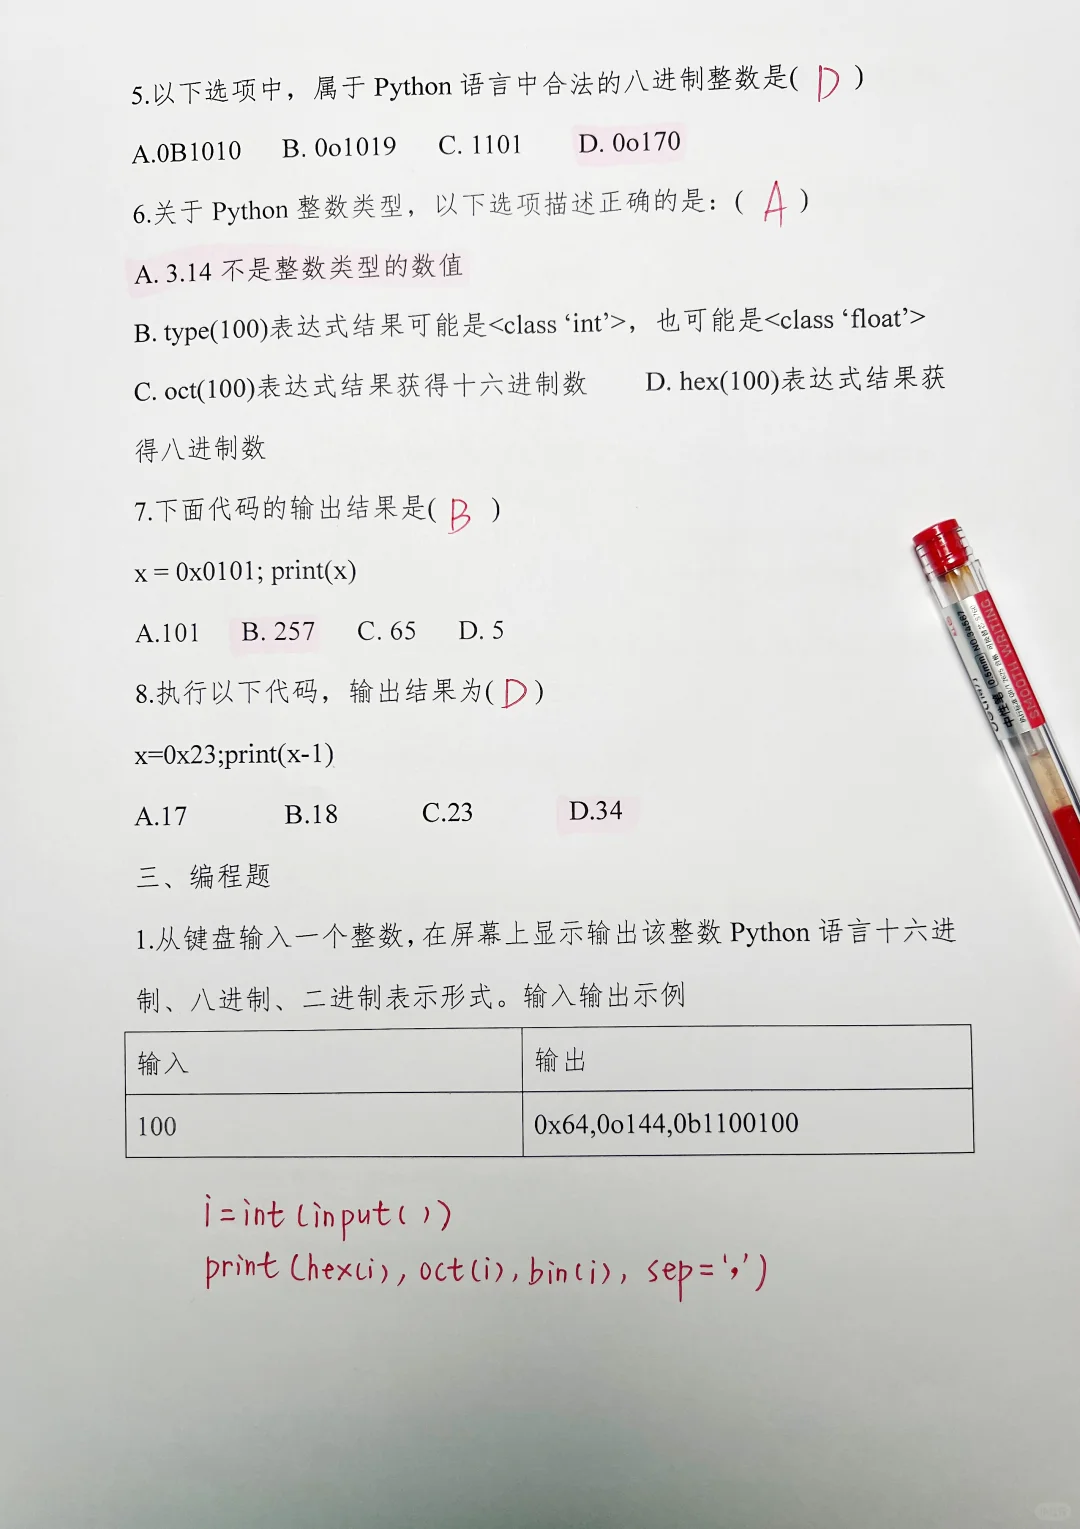 5.以下选项中，属于 Python 语言中合法的八进制整数是( D )
A.0B1010 B. 0o1019 C. 1101 D. 0o170
6.关于 Python 整数类型，以下选项描述正确的是：( A )
A. 3.14 不是整数类型的数值
B. type(100)表达式结果可能是<class ‘int’>，也可能是<class ‘float’>
C. oct(100)表达式结果获得十六进制数 D. hex(100)表达式结果获
得八进制数
7.下面代码的输出结果是( B )
x = 0x0101; print(x)
A.101 B. 257 C. 65 D. 5
8.执行以下代码，输出结果为( D )
x=0x23;print(x-1)
A.17 B.18 C.23 D.34
三、编程题
1.从键盘输入一个整数,在屏幕上显示输出该整数 Python 语言十六进
制、八进制、二进制表示形式。输入输出示例
输入 输出
100 0x64,0o144,0b1100100
i=int(input())
print(hex(i),oct(i),bin(i), sep=',')
SMOOTH WRITING
中性笔